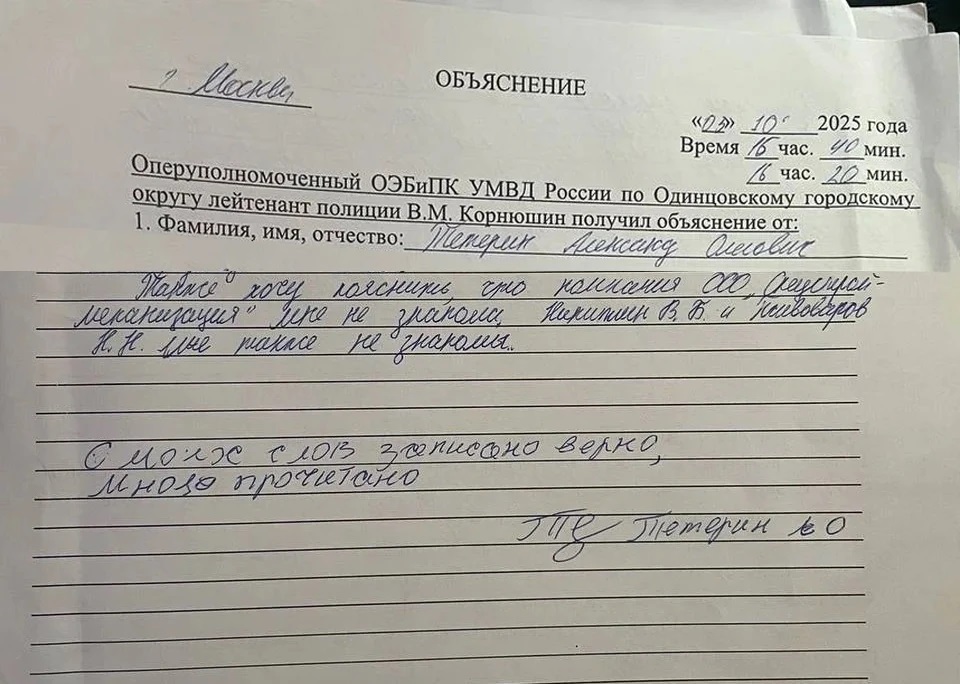 г. Москва
ОБЪЯСНЕНИЕ
«03» 10 2025 года
Время 15 час. 40 мин.
16 час. 20 мин.
Оперуполномоченный ОЭБиПК УМВД России по Одинцовскому городскому
округу лейтенант полиции В.М. Корнюшин получил объяснение от:
1. Фамилия, имя, отчество: Тетерин Александр
Также хочу пояснить, что компания ООО „Спецстрой-
механизация" мне не знакома, Никитин В.Б. и Пивоваров
Н.Н. мне также не знакомы.
С моих слов записано верно,
мною прочитано
Тетерин О